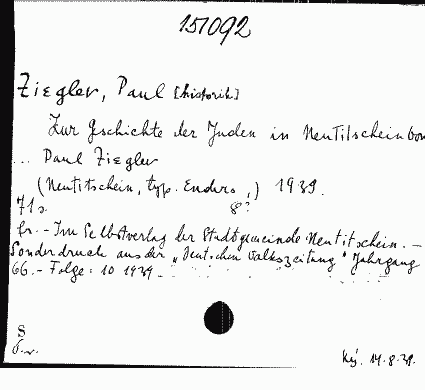 151092
Ziegler, Paul [historik.]
Zur Geschichte der Juden in Neutitschein von
... Paul Ziegler
(Neutitschein, typ. Enders,) 1939.
71 s. 8°
br. - Im Selbstverlag der Stadtgemeinde Neutitschein. -
Sonderdruck aus der „Deutschen Volkszeitung" Jahrgang
66. - Folge: 10 1939
S
14.8.39.